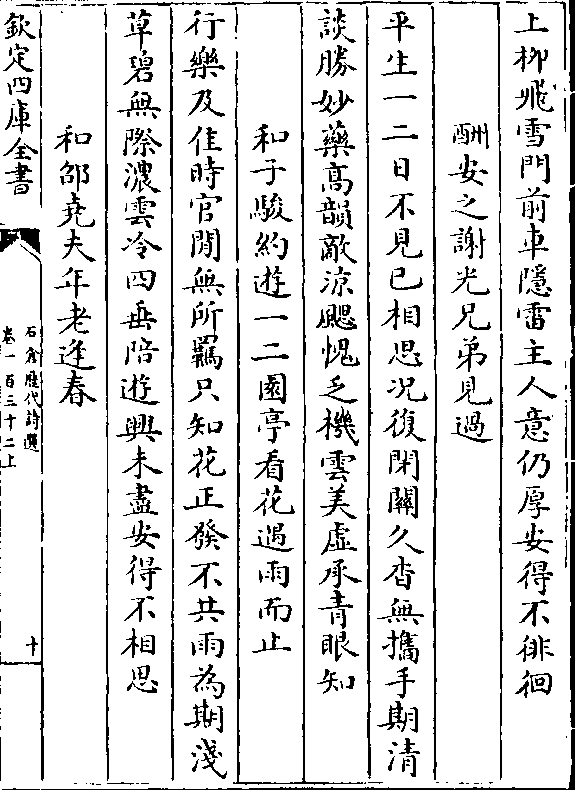 上柳飛雪門前車隱雷主人意仍厚安得不徘徊
酬安之謝光兄弟見過
平生一二日不見已相思况復閉關久杳無攜手期清
談勝妙藥高韻敵涼颸愧乏機雲美虛承青眼知
和子駿約遊一二園亭看花遇雨而止
行樂及佳時官閒無所羈只知花正發不共雨為期淺
草碧無際濃雲冷四垂陪遊興未盡安得不相思
和邵堯夫年老逢春
欽定四庫全書
石倉歷代詩選
卷一百三十二上
十